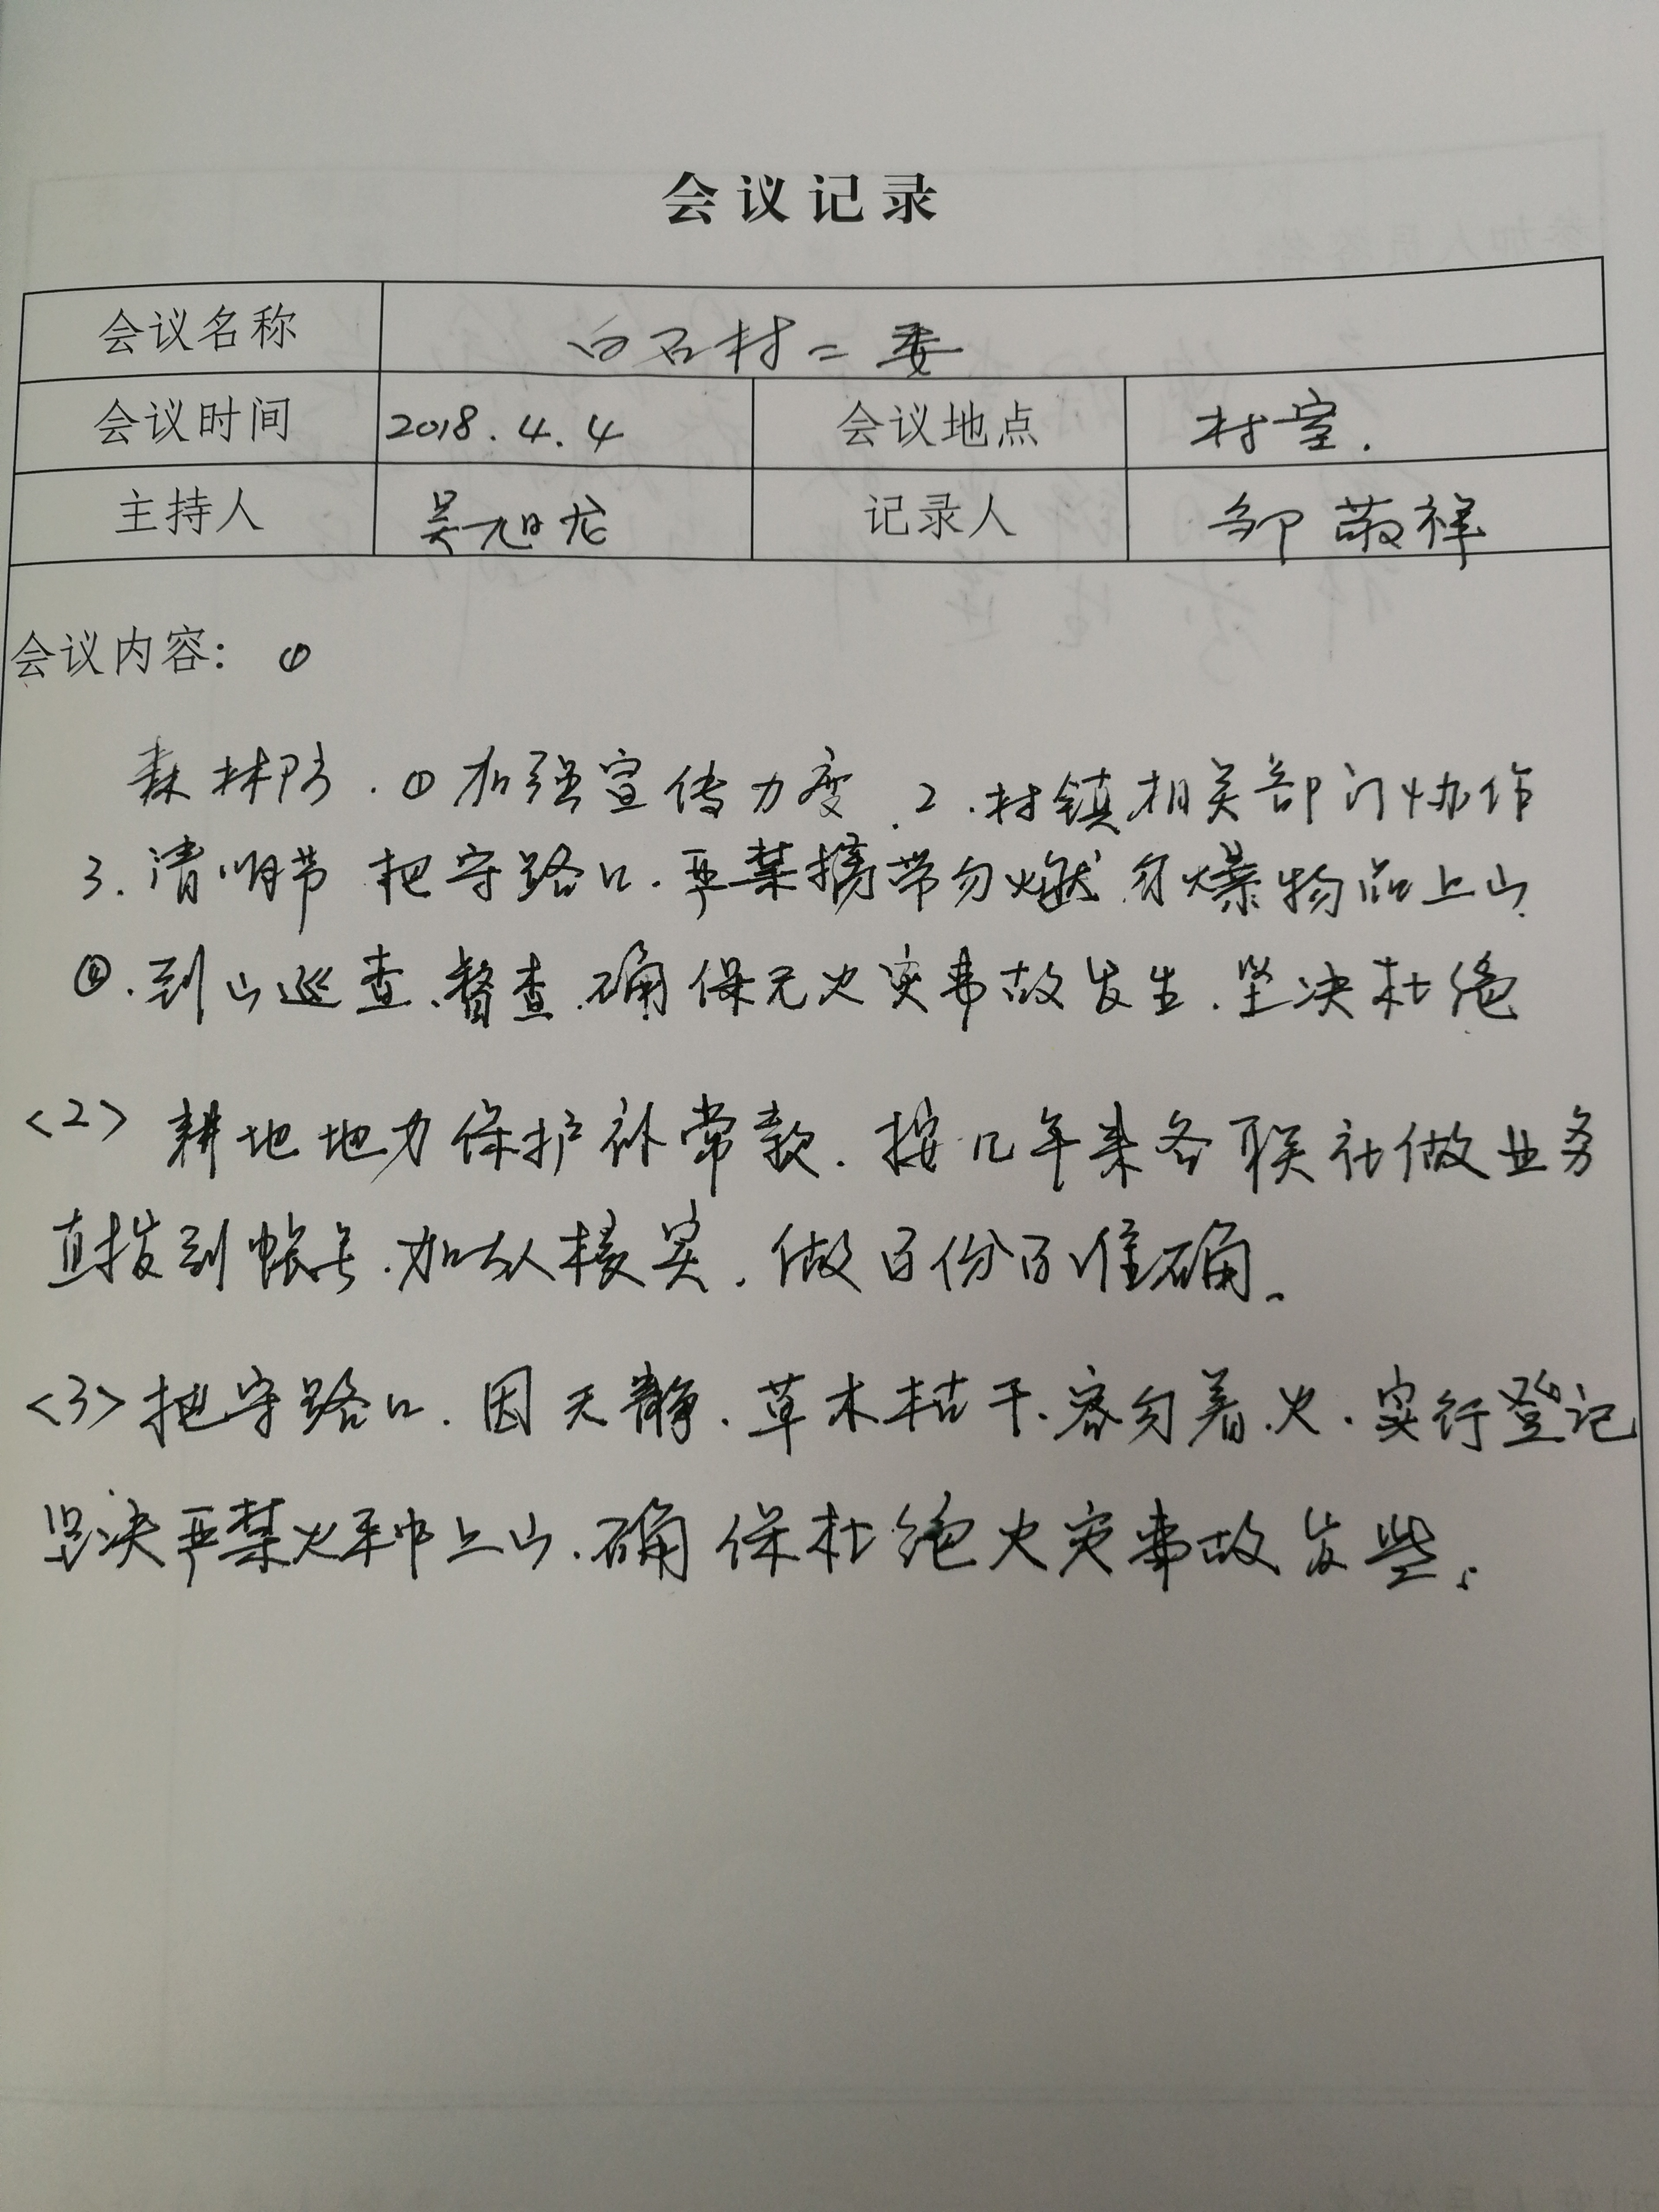 会议记录
会议名称 白石村二委
会议时间 2018.4.4 会议地点 村室.
主持人 吴旭龙 记录人 邹敬祥
会议内容: ①
森林防.①加强宣传力度.2.村镇相关部门协作
3.清明节 把守路口.严禁携带勿燃勿爆物品上山
④.到山巡查、督查.确保无火灾事故发生.坚决杜绝
<2> 耕地地力保护补常款.按几年来各联社做业务
直拨到帐号.加以核实.做百份百准确.
<3>把守路口.因天静.草木枯干.容勿着火.实行登记
坚决严禁火种上山.确保杜绝火灾事故发些.